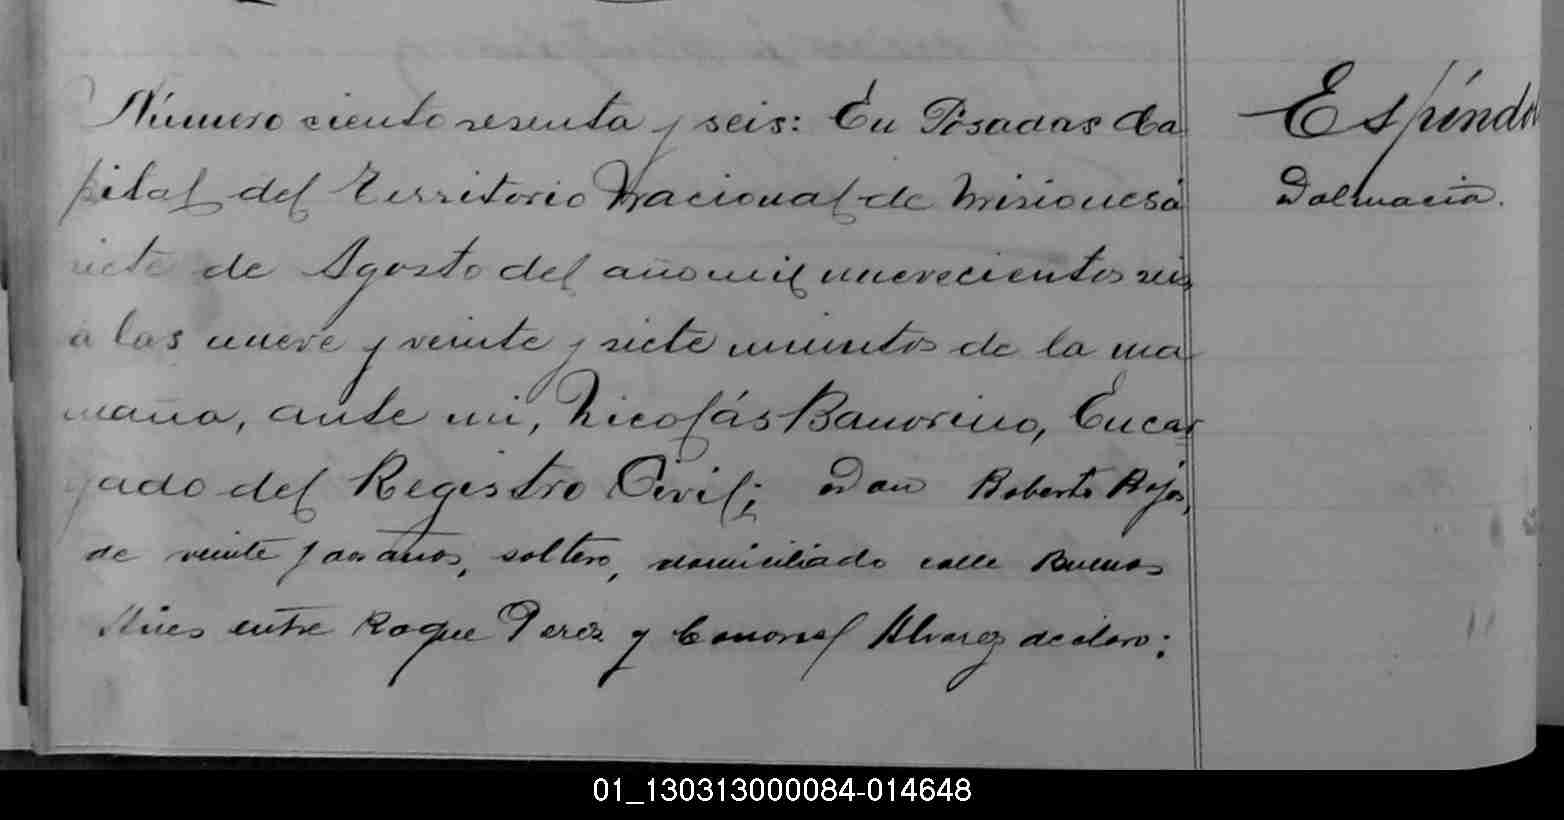 Número ciento sesenta y seis: En Posadas Ca
pital del Territorio Nacional de Misiones á
siete de Agosto del año mil nuevecientos seis
á las nueve y veinte y siete minutos de la ma
mañana, ante mi, Nicolás Bamorino, Encar
gado del Registro Civil; Don Roberto Rojas,
de veinte y dos años, soltero, domiciliado calle Buenos
Aires entre Roque Perez y Coronel Alvarez declaro:
Espíndol
Dalmacia.
01_130313000084-014648